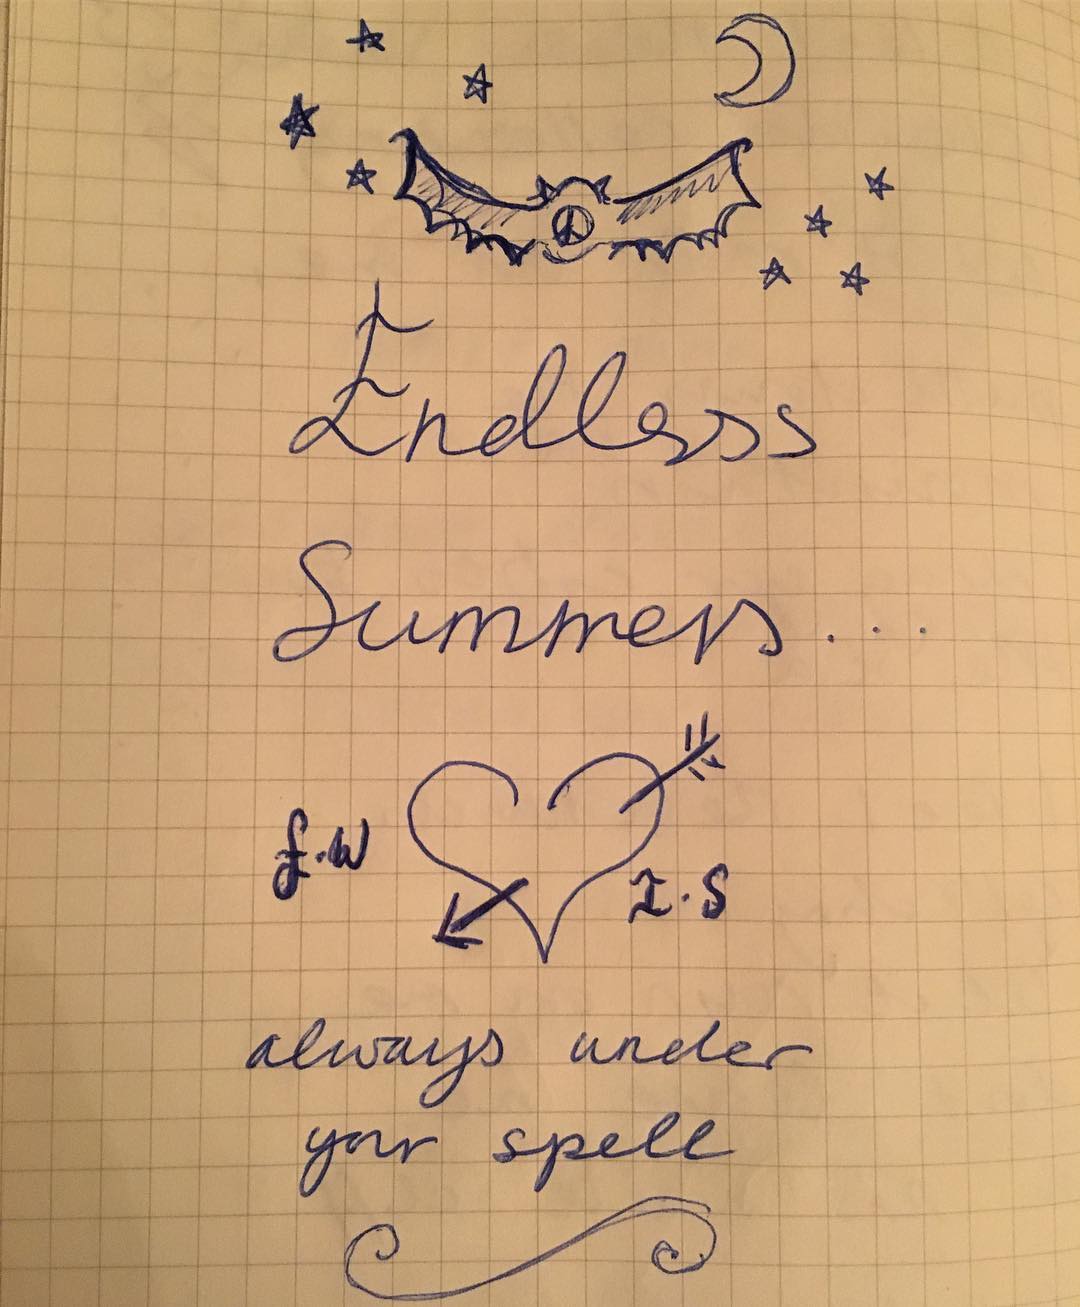 Endless
Summers....
L.W
I.S
always under
your spell